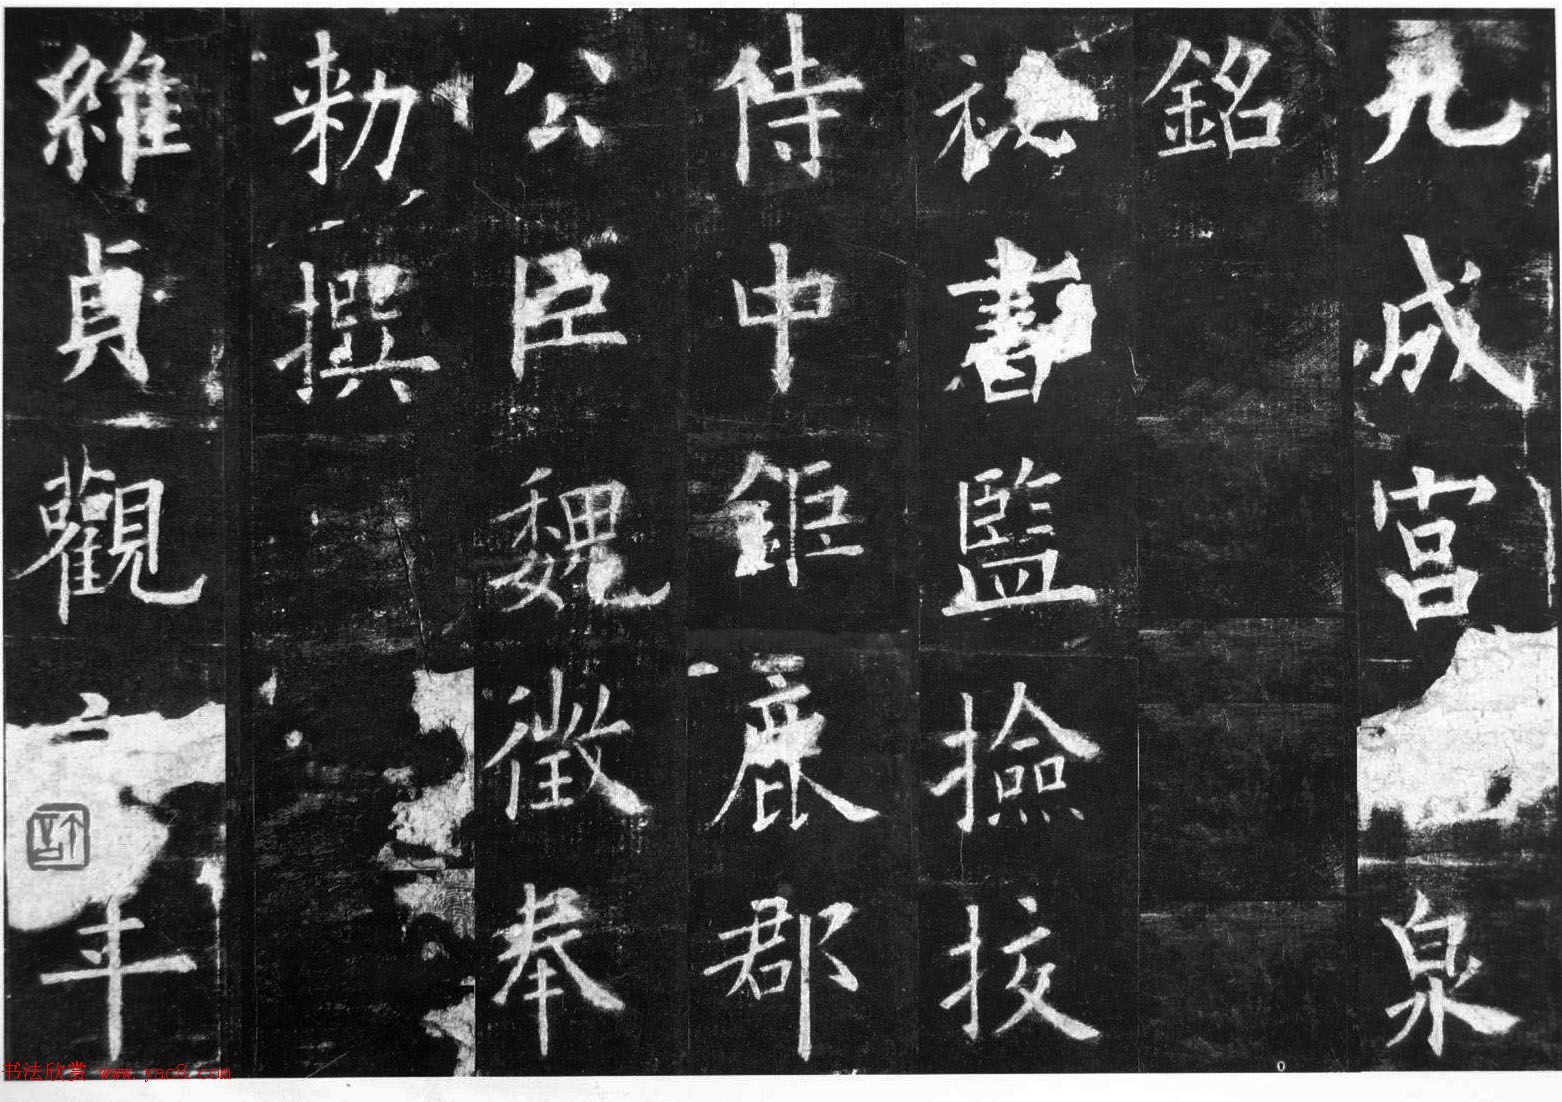 九成宮泉
銘
祕書監撿挍
侍中鉅鹿郡
公臣魏徵奉
勑撰
維貞觀年
书法欣赏 www.yac8.com